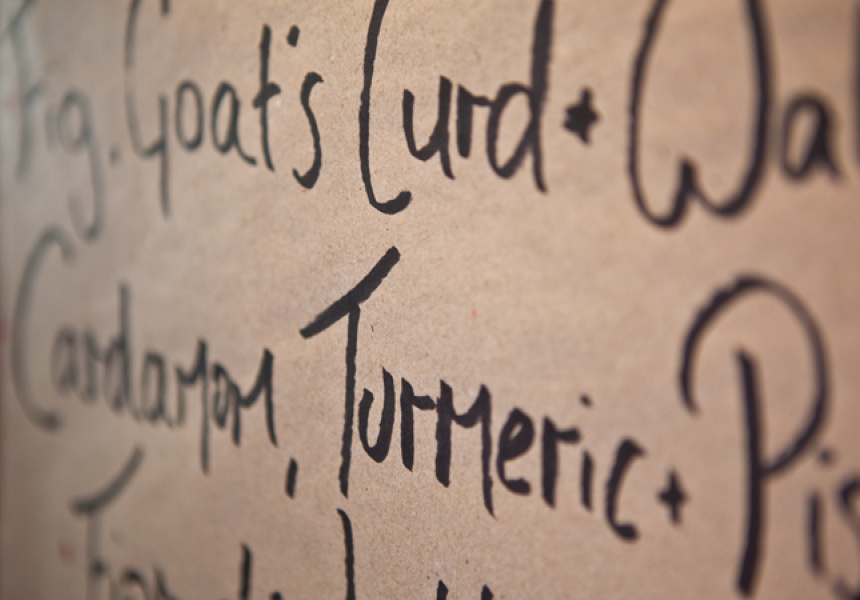 Fig. Goat's Curd + Wal
Cardamom, Turmeric + Pis